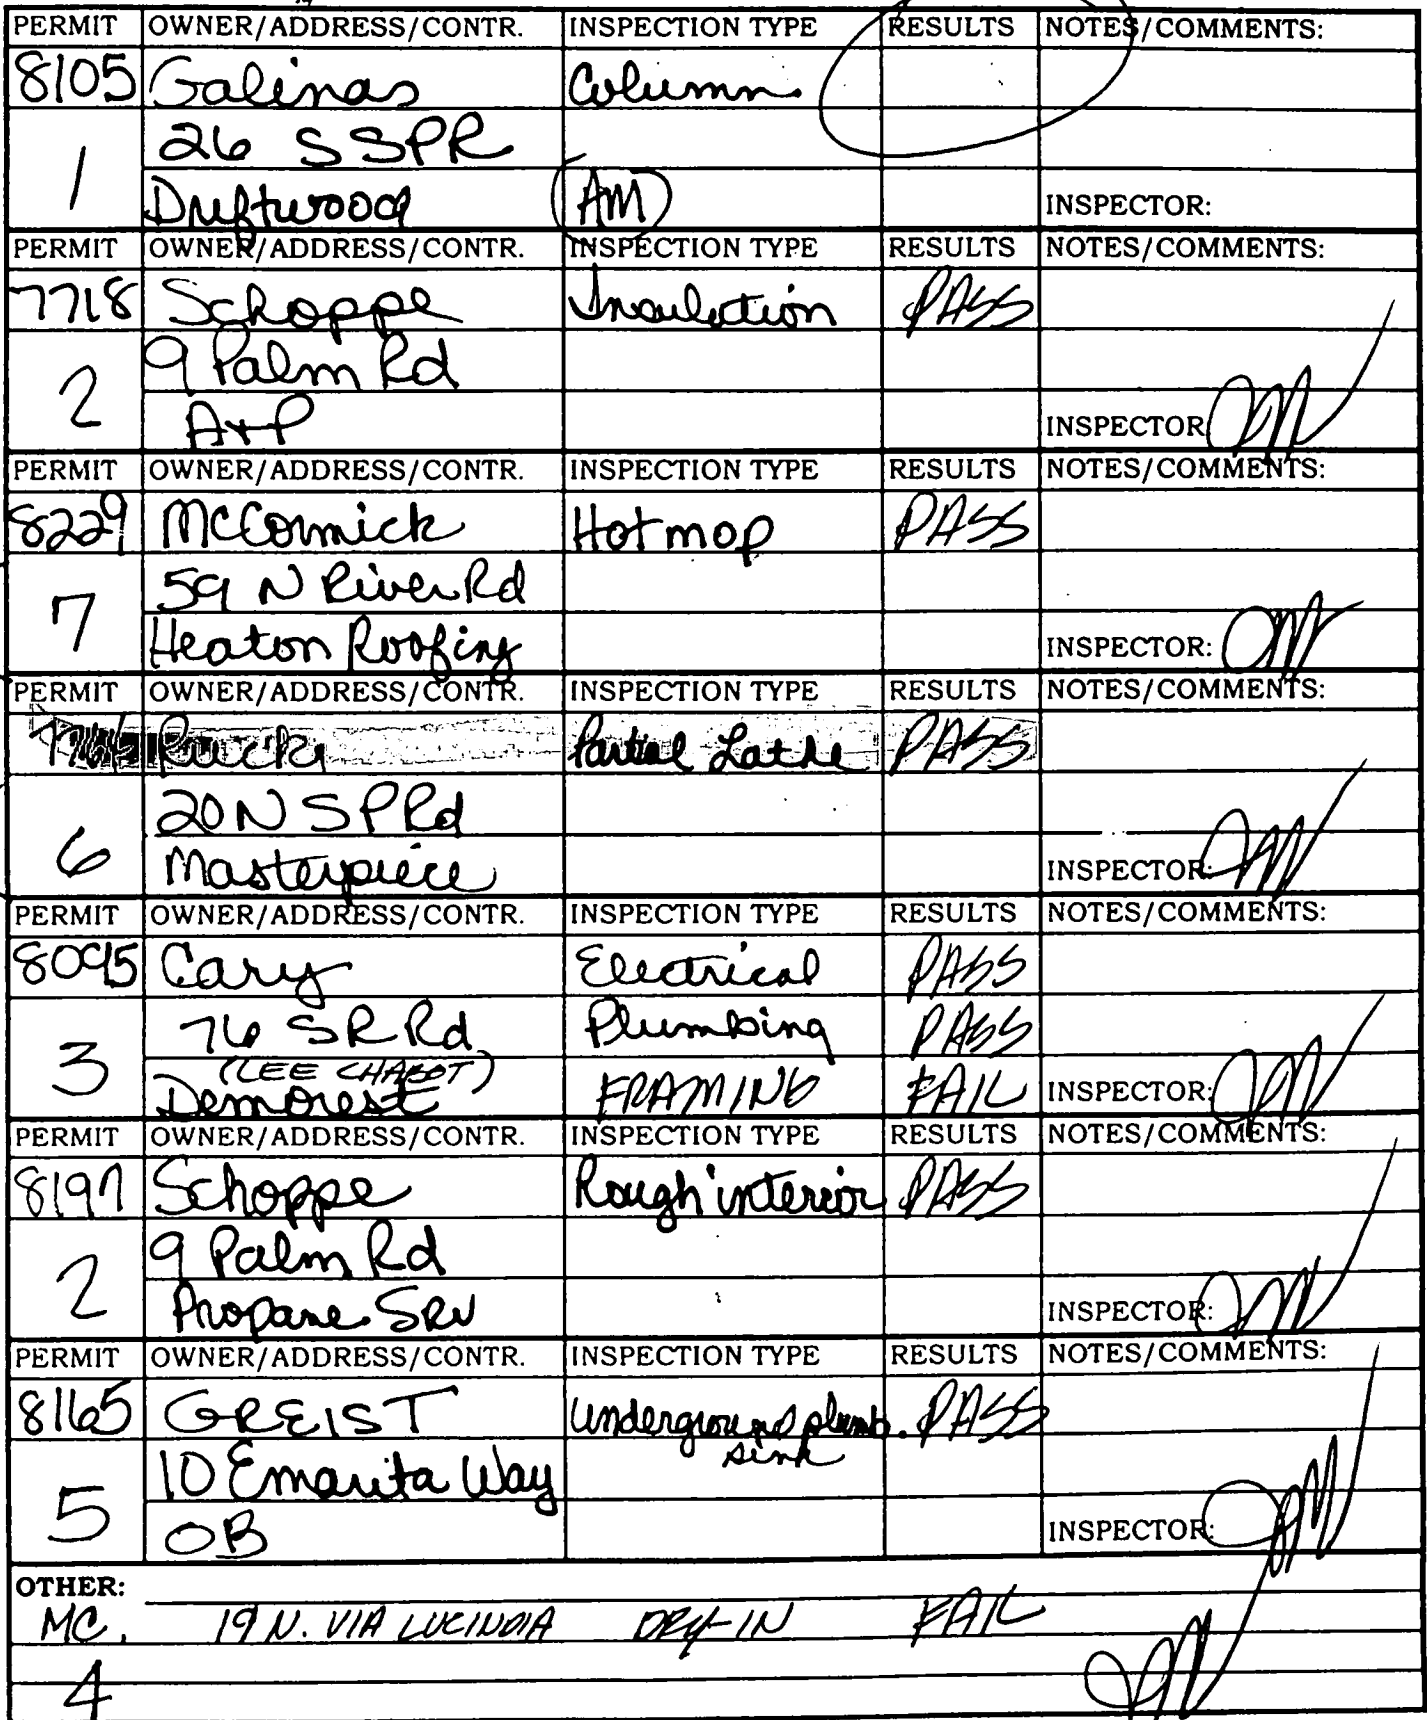 PERMIT OWNER/ADDRESS/CONTR. INSPECTION TYPE RESULTS NOTES/COMMENTS:
8105 Galinas Column
1 26 SSPR
Driftwood AM INSPECTOR:
PERMIT OWNER/ADDRESS/CONTR. INSPECTION TYPE RESULTS NOTES/COMMENTS:
7718 Schoppe Insulation PASS
2 9 Palm Rd
A+P INSPECTOR
PERMIT OWNER/ADDRESS/CONTR. INSPECTION TYPE RESULTS NOTES/COMMENTS:
8229 McCormick Hot mop PASS
7 59 N River Rd
Heaton Roofing INSPECTOR:
PERMIT OWNER/ADDRESS/CONTR. INSPECTION TYPE RESULTS NOTES/COMMENTS:
Partial Lathe PASS
6 20 N SP Rd
Masterpiece INSPECTOR:
PERMIT OWNER/ADDRESS/CONTR. INSPECTION TYPE RESULTS NOTES/COMMENTS:
8095 Cary Electrical PASS
3 76 SR Rd Plumbing PASS
(LEE CHABOT)
Demorest FRAMING FAIL INSPECTOR:
PERMIT OWNER/ADDRESS/CONTR. INSPECTION TYPE RESULTS NOTES/COMMENTS:
8197 Schoppe Rough interior PASS
2 9 Palm Rd
Propane Srv INSPECTOR:
PERMIT OWNER/ADDRESS/CONTR. INSPECTION TYPE RESULTS NOTES/COMMENTS:
8165 GREIST Underground plumb. PASS
sink
5 10 Emarita Way
OB INSPECTOR:
OTHER:
MC. 19 N. VIA LUCINDIA DRY-IN FAIL
4